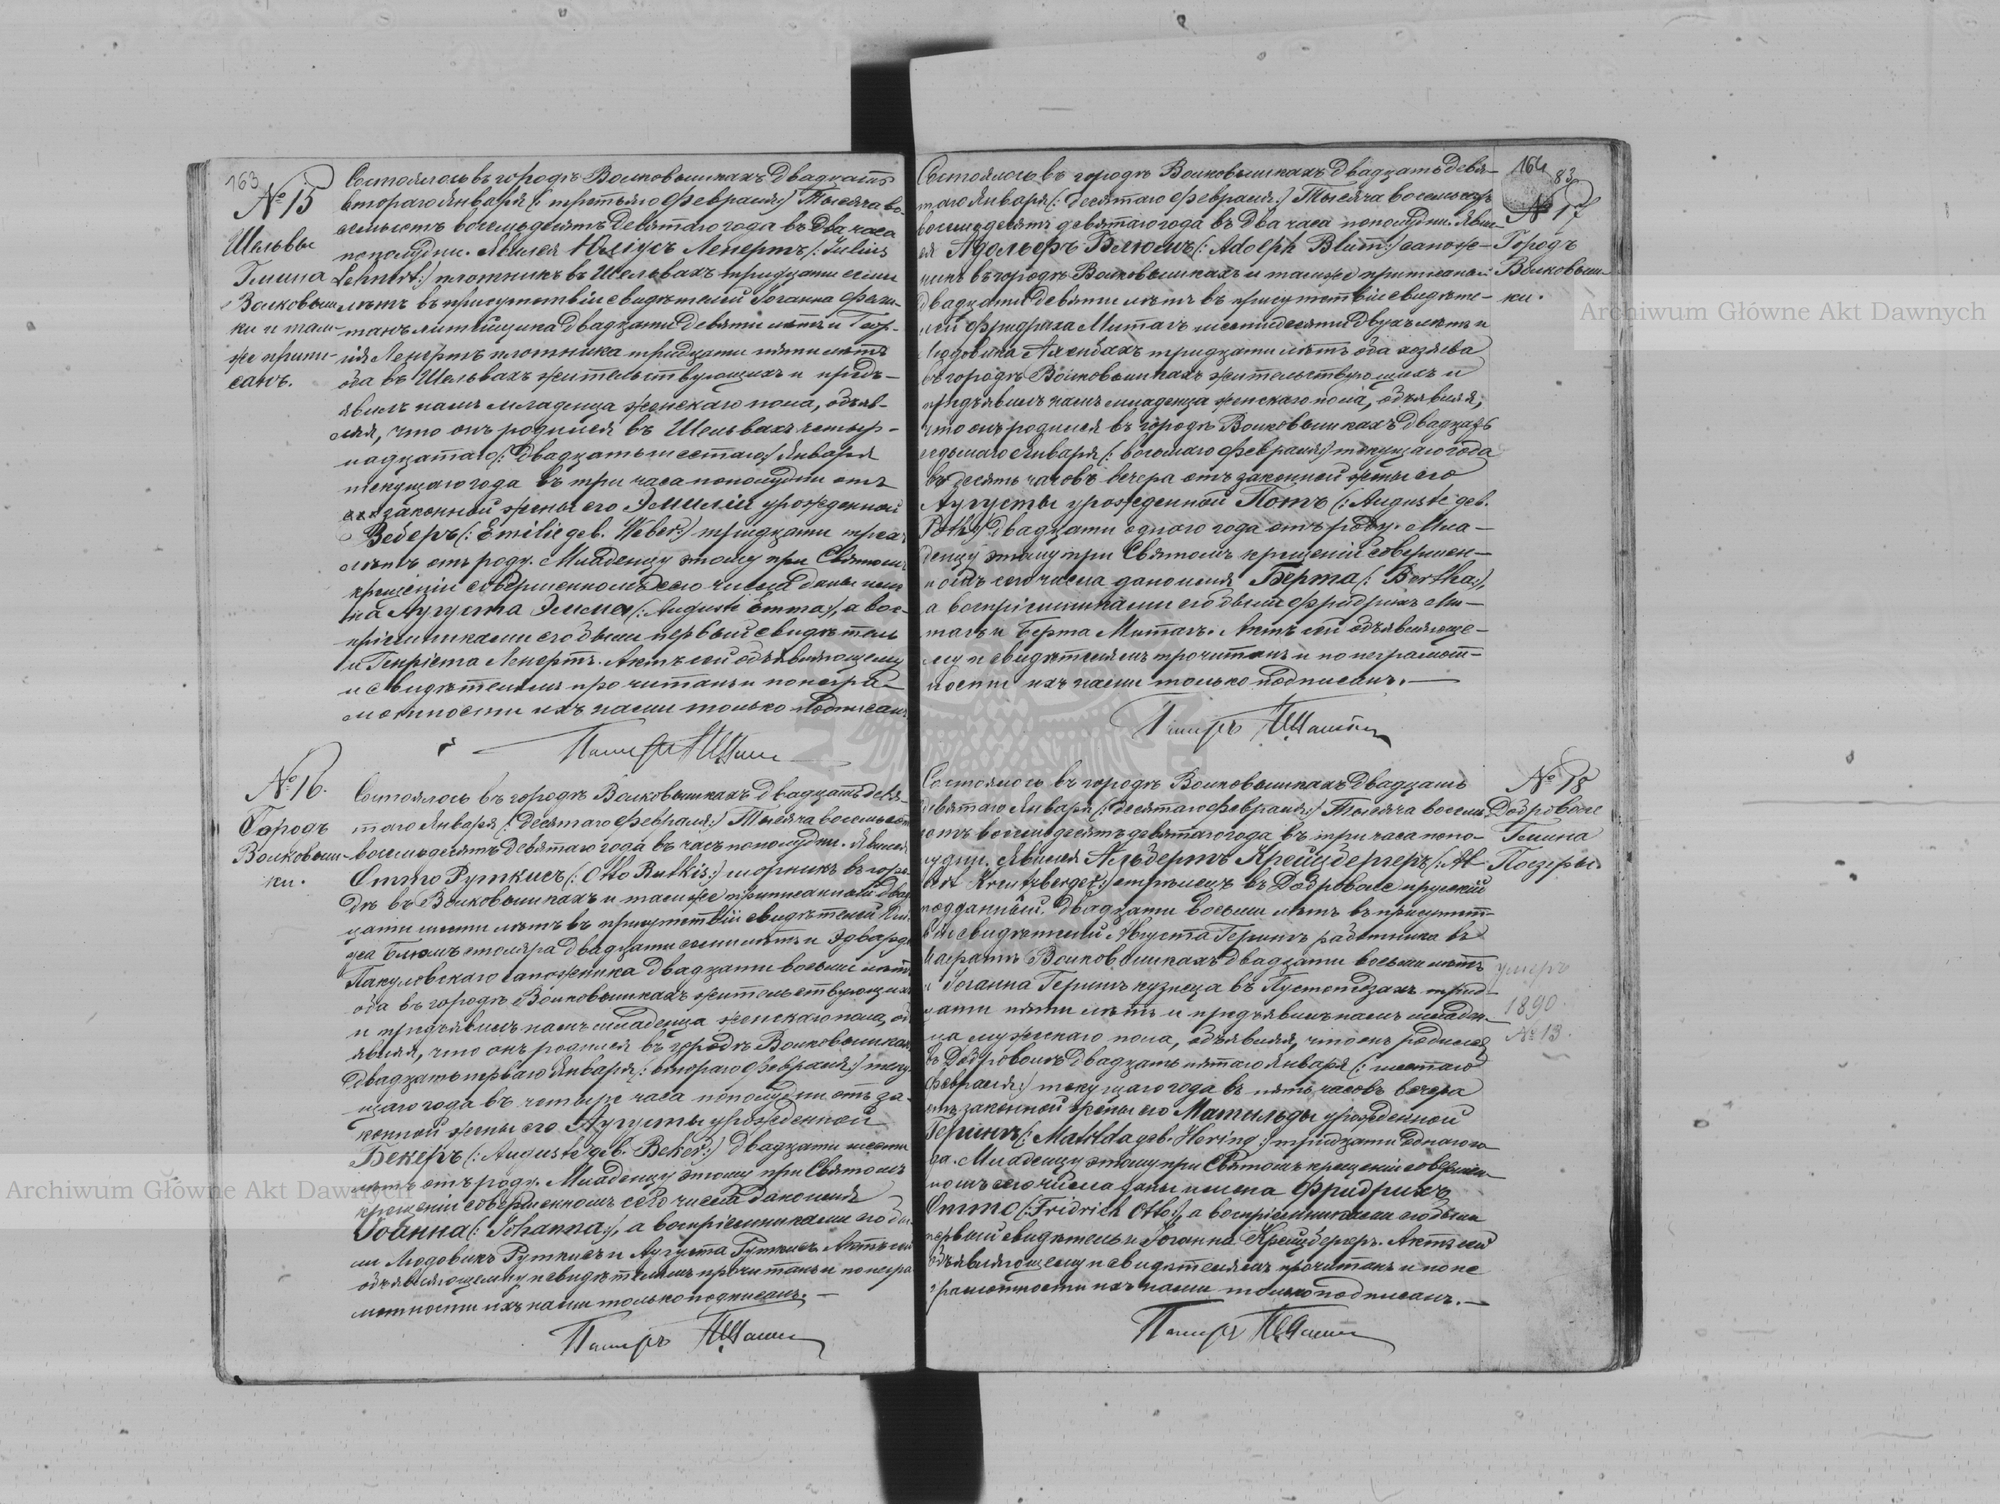 163
№ 15
Шельвы
Гмина
Волковыш-
ки и там-
же припи-
санъ.
Состоялось въ городѣ Волковышкахъ двадцать
втораго Января (: третьяго Февраля:) Тысяча во-
семьсотъ восемьдесятъ девятаго года въ два часа
пополудни. Явился Юліусъ Ленертъ (: Julius
Lehnert:) плотникъ въ Шельвахъ тридцати семи
лѣтъ въ присутствіи свидѣтелей Іоганна
двадцати девяти лѣтъ и
Ленертъ плотника тридцати пяти лѣтъ
оба въ Шельвахъ жительствующихъ и предъ-
явилъ намъ младенца женскаго пола, объяв-
ляя, что онъ родился въ Шельвахъ четыр-
надцатаго (: двадцать шестаго:) Января
текущаго года въ три часа пополудни отъ
законной жены его Эмиліи урожденной
Веберъ (: Emilie geb. Weber:) тридцати трехъ
лѣтъ отъ роду. Младенцу этому при Святомъ
крещеніи совершенномъ сего числа даны име-
на Аугуста Эмма (: Auguste Emma:), а вос-
пріемниками его были первый свидѣтель
и Генріета Ленертъ. Актъ сей объявляющему
и свидѣтелямъ прочитанъ и по негра-
мотности ихъ нами только подписанъ.
Пасторъ
№ 16.
Городъ
Волковыш-
ки.
Состоялось въ городѣ Волковышкахъ двадцать девя-
таго Января (: десятаго Февраля:) Тысяча восемьсотъ
восемьдесятъ девятаго года въ часъ пополудни. Явился
Отто Руткисъ (: Otto Rutkis:) шорникъ въ горо-
дѣ въ Волковышкахъ и тамже приписанный двад-
цати шести лѣтъ въ присутствіи свидѣтелей
Блюмъ столяра двадцати семи лѣтъ и Эдварда
Пакуловскаго сапожника двадцати восьми лѣтъ
оба въ городѣ Волковышкахъ жительствующихъ
и предъявилъ намъ младенца женскаго пола, объ-
являя, что онъ родился въ городѣ Волковышкахъ
двадцать перваго Января (: втораго Февраля:) теку-
щаго года въ четыре часа пополудни отъ за-
конной жены его Аугусты урожденной
Бекеръ (: Auguste geb. Beker:) двадцати шести
лѣтъ отъ роду. Младенцу этому при Святомъ
крещеніи совершенномъ сего числа дано имя
Іоганна (: Johanna:), а воспріемниками его бы-
ли Людовикъ Руткисъ и Аугуста Руткисъ. Актъ сей
объявляющему и свидѣтелямъ прочитанъ и по негра-
мотности ихъ нами только подписанъ.
Пасторъ
164
83
№ 17
Городъ
Волковыш-
ки.
Состоялось въ городѣ Волковышкахъ двадцать девя-
таго Января (: десятаго Февраля:) Тысяча восемьсотъ
восемьдесятъ девятаго года въ два часа пополудни. Явил-
ся Адольфъ Блюмъ (: Adolph Blum:) сапож-
никъ въ городѣ Волковышкахъ и тамже приписаный
двадцати девяти лѣтъ въ присутствіи свидѣте-
лей Фридриха Миталъ шестидесяти двухъ лѣтъ и
Людовика Ахенбахъ тридцати лѣтъ оба хозяева
въ городѣ Волковышкахъ жительствующихъ и
предъявилъ намъ младенца женскаго пола, объявляя,
что онъ родился въ городѣ Волковышкахъ двадцать
седьмаго Января (: восьмаго Февраля:) текущаго года
въ десять часовъ вечера отъ законной жены его
Аугусты урожденной Потъ (: Auguste geb.
Poth:) двадцати одного года отъ роду. Мла-
денцу этому при Святомъ крещеніи совершен-
номъ сего числа дано имя Берта (: Bertha:),
а воспріемниками его были Фридрихъ Ми-
талъ и Берта Миталъ. Актъ сей объявляюще-
му и свидѣтелямъ прочитанъ и по неграмот-
ности ихъ нами только подписанъ.
Пасторъ
№ 18
Добровольс
Гмина
Поезеры
умеръ
1890.
№ 13.
Состоялось въ городѣ Волковышкахъ двадцать
девятаго Января (: десятаго Февраля:) Тысяча восемь-
сотъ восемьдесятъ девятаго года въ три часа попо-
лудни. Явился Альбертъ Крейцбергеръ (: Al-
bert Kreutzberger:) стрѣлецъ въ Добровольс прусскій
подданный двадцати восьми лѣтъ въ присутст-
віи свидѣтелей Августа Герингъ работника въ
Волковышкахъ двадцати восьми лѣтъ
и Іоганна Герингъ кузнеца въ Пустопѣдзахъ трид-
цати пяти лѣтъ и предъявилъ намъ младен-
ца мужескаго пола, объявляя, что онъ родился
въ Добровольс двадцать пятаго Января (: шестаго
Февраля:) текущаго года въ пять часовъ вечера
отъ законной жены его Матильды урожденной
Герингъ (: Matilda geb. Hering:) тридцати одного го-
да. Младенцу этому при Святомъ крещеніи совершен-
номъ сего числа даны имена Фридрихъ
Отто (: Fridrich Otto:), а воспріемниками его были
первый свидѣтель и Іоганна Крейцбергеръ. Актъ сей
объявляющему и свидѣтелямъ прочитанъ и по не
грамотности ихъ нами только подписанъ.
Пасторъ
Archiwum Główne Akt Dawnych
Archiwum Główne Akt Dawnych